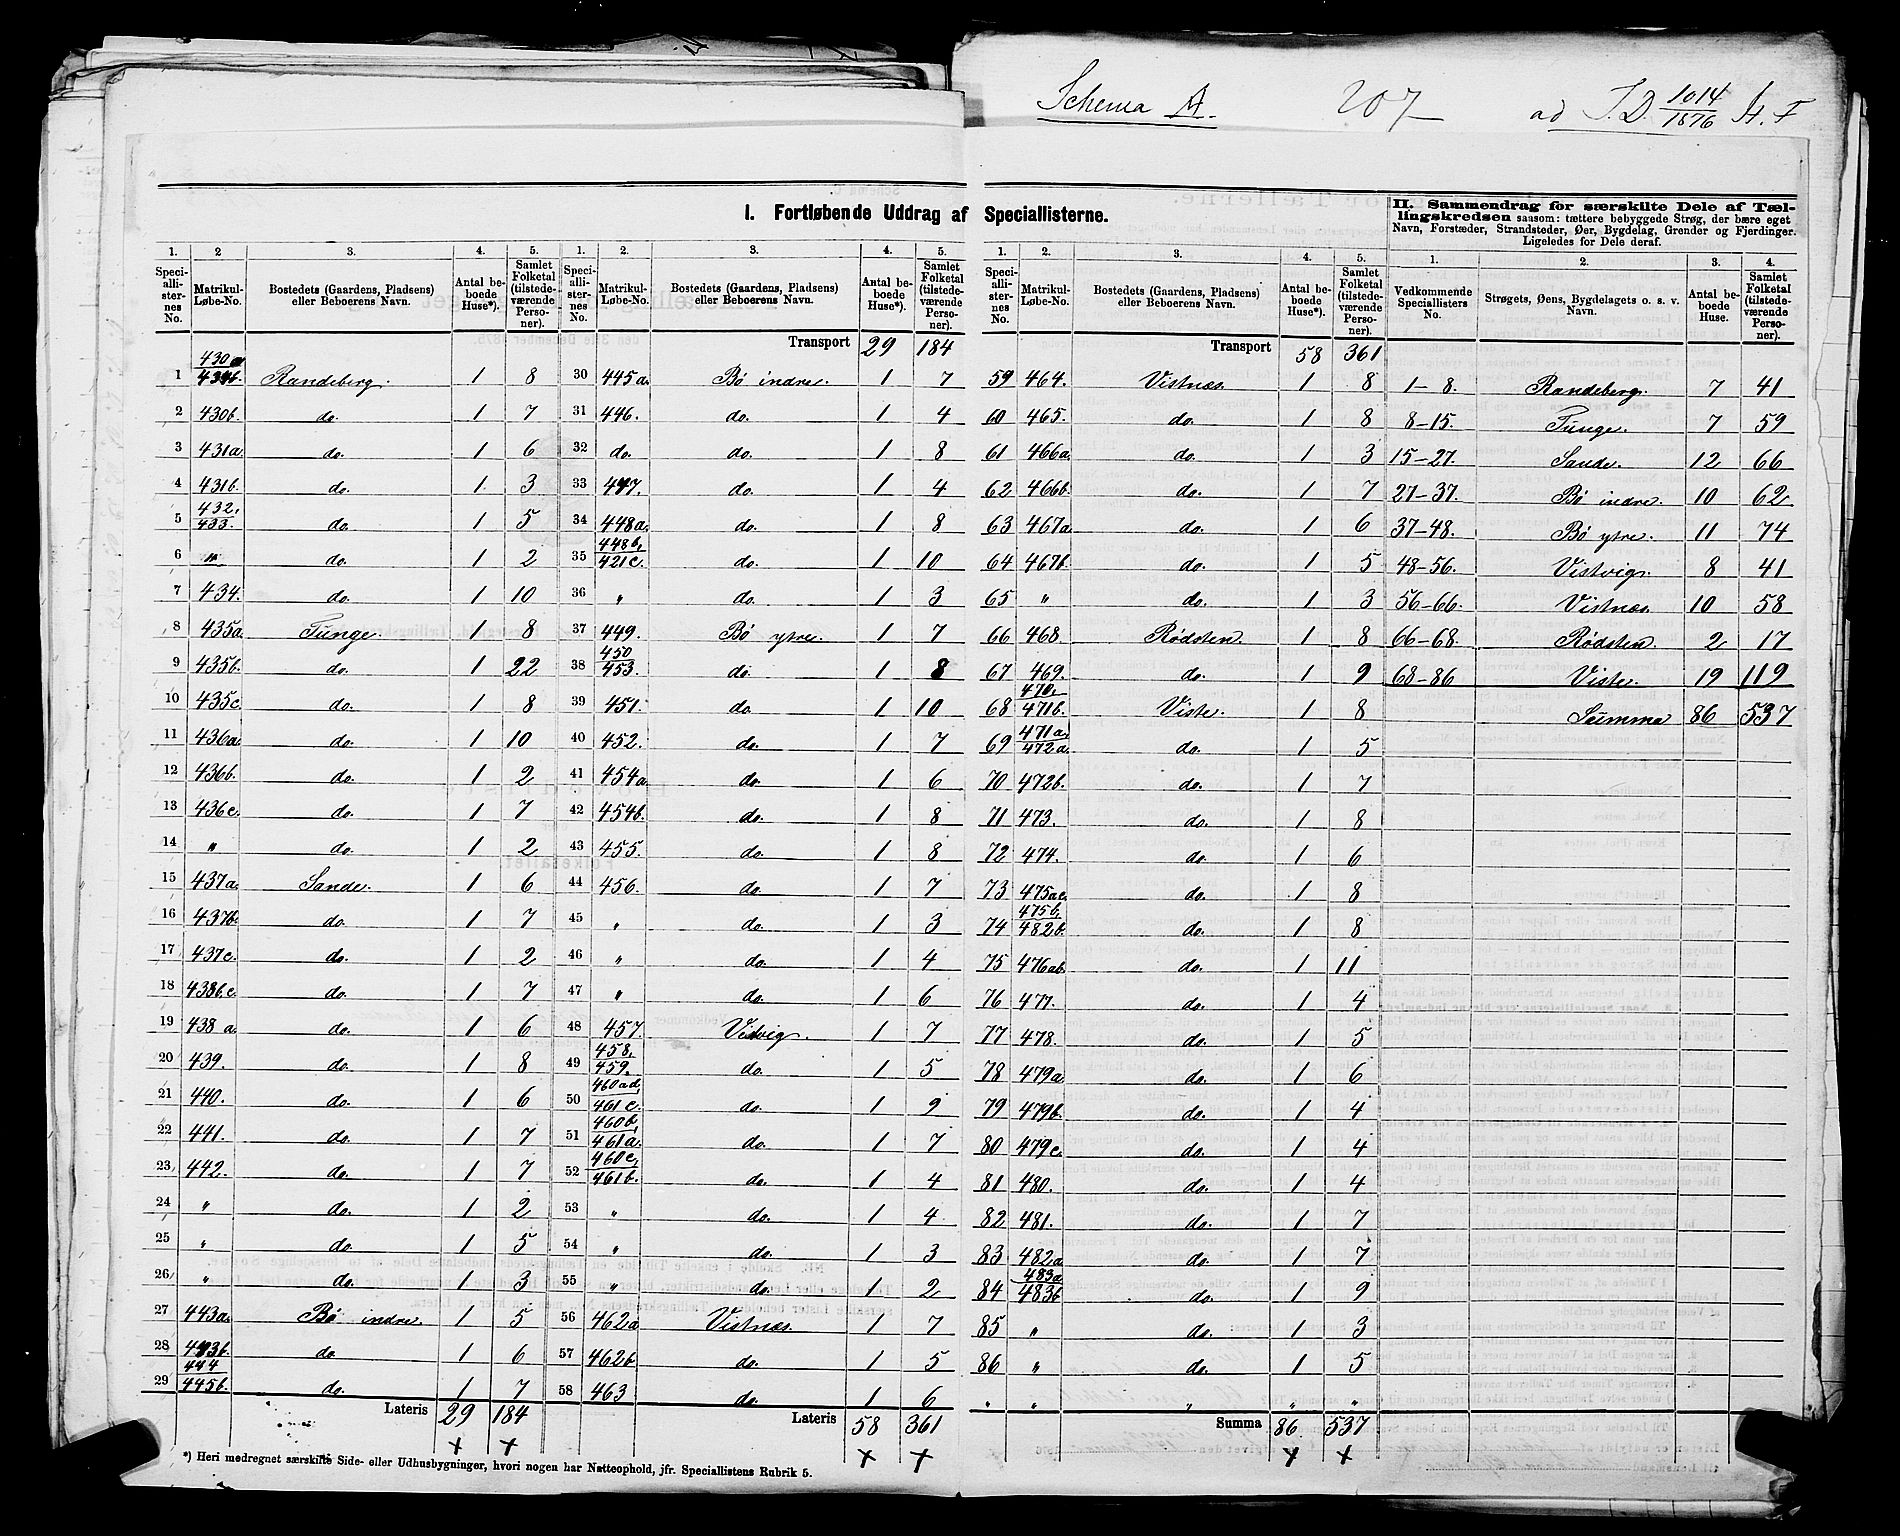 Schema A. 207 ad I.D. 1014/1876 H. F
I. Fortløbende Uddrag af Speciallisterne.
II. Sammendrag for særskilte Dele af Tæl-
lingskredsen saasom: tættere bebyggede Strøg, der bære eget
Navn, Forstæder, Strandsteder, Øer, Bygdelag, Grender og Fjerdinger.
Ligeledes for Dele deraf.
1. 2 3. 4. 5.
Speciallisternes No. Matrikul-Løbe-No. Bostedets (Gaardens, Pladsens) eller Beboerens Navn. Antal beboede Huse*). Samlet Folketal (tilstedeværende Personer).
1 430a/431b. Randeberg. 1 8
2 430b. do. 1 7
3 431a. do. 1 6
4 431b. do. 1 3
5 432,/433. do. 1 5
6 " do. 1 2
7 434. do. 1 10
8 435a. Tunge. 1 8
9 435b. do. 1 22
10 435c. do. 1 8
11 436a. do. 1 10
12 436b. do. 1 2
13 436c. do. 1 7
14 " do. 1 2
15 437a. Sande. 1 6
16 437b. do. 1 7
17 437c. do. 1 2
18 438b.c. do. 1 7
19 438 a. do. 1 6
20 439. do. 1 8
21 440. do. 1 6
22 441. do. 1 7
23 442. do. 1 7
24 " do. 1 2
25 " do. 1 5
26 " do. 1 3
27 443a. Bø indre. 1 5
28 443b. do 1 6
29 444/445b. do. 1 7
Lateris 29 184
1. 2. 3. 4. 5.
Speciallisternes No. Matrikul-Løbe-No. Bostedets (Gaardens, Pladsens) eller Beboerens Navn. Antal beboede Huse*). Samlet Folketal (tilstedeværende Personer).
Transport 29 184
30 445a. Bø indre. 1 7
31 446. do. 1 4
32 do. do. 1 8
33 447. do. 1 4
34 448a. do. 1 8
35 448b,/421c. do. 1 10
36 " do. 1 3
37 449. Bø ytre. 1 7
38 450/453. do. 1 8
39 451. do. 1 10
40 452. do. 1 7
41 454a. do. 1 6
42 454b. do. 1 8
43 455. do. 1 8
44 456. do. 1 7
45 " do. 1 3
46 " do. 1 4
47 " do. 1 6
48 457. Vistvig. 1 7
49 458,/459. do. 1 5
50 460ad,/461c. do. 1 9
51 460b,/461a. do. 1 7
52 460c,/461b. do. 1 4
53 " do. 1 4
54 " do. 1 3
55 " do. 1 2
56 462a Vistnæs. 1 7
57 462b do. 1 5
58 463 do. 1 6
Lateris 58 361
1. 2. 3. 4. 5.
Speciallisternes No. Matrikul-Løbe-No. Bostedets (Gaardens, Pladsens) eller Beboerens Navn. Antal beboede Huse*). Samlet Folketal (tilstedeværende Personer).
Transport 58 361
59 464. Vistnæs. 1 8
60 465. do. 1 8
61 466a. do. 1 3
62 466b. do. 1 7
63 467a. do. 1 6
64 467b. do. 1 5
65 " do. 1 3
66 468. Rødsten. 1 8
67 469. do. 1 9
68 470,/471b. Viste. 1 8
69 471a,/472a. do. 1 5
70 472b. do. 1 7
71 473. do. 1 8
72 474. do. 1 6
73 475ac. do. 1 8
74 475b,/482b. do. 1 8
75 476ab. do. 1 11
76 477. do. 1 4
77 478. do. 1 5
78 479a. do. 1 6
79 479b. do. 1 4
80 479c. do. 1 4
81 480. do. 1 4
82 481. do. 1 7
83 482a do. 1 7
84 483a/483b do. 1 9
85 " do. 1 3
86 " do. 1 5
" " " " "
Summa 86. 537
1. 2. 3. 4.
Vedkommende Speciallisters No. Strøgets, Øens, Bygdelagets o. s. v. Navn. Antal beboede Huse. Samlet Folketal (tilstedeværende Personer).
1-8. Randeberg. 7 41
8-15. Tunge. 7 59
15-27. Sande. 12 66
27-37. Bø indre. 10 62
37-48. Bø ytre. 11 74
48-56. Vistvig. 8 41
56-66. Vistnæs. 10 58
66-68. Rødsten. 2 17
68-86 Viste. 19 119
Summa 86 537
*) Heri medregnet særskilte Side- eller Udhusbygninger, hvori nogen har Natteophold, jfr. Speciallistens Rubrik 5.